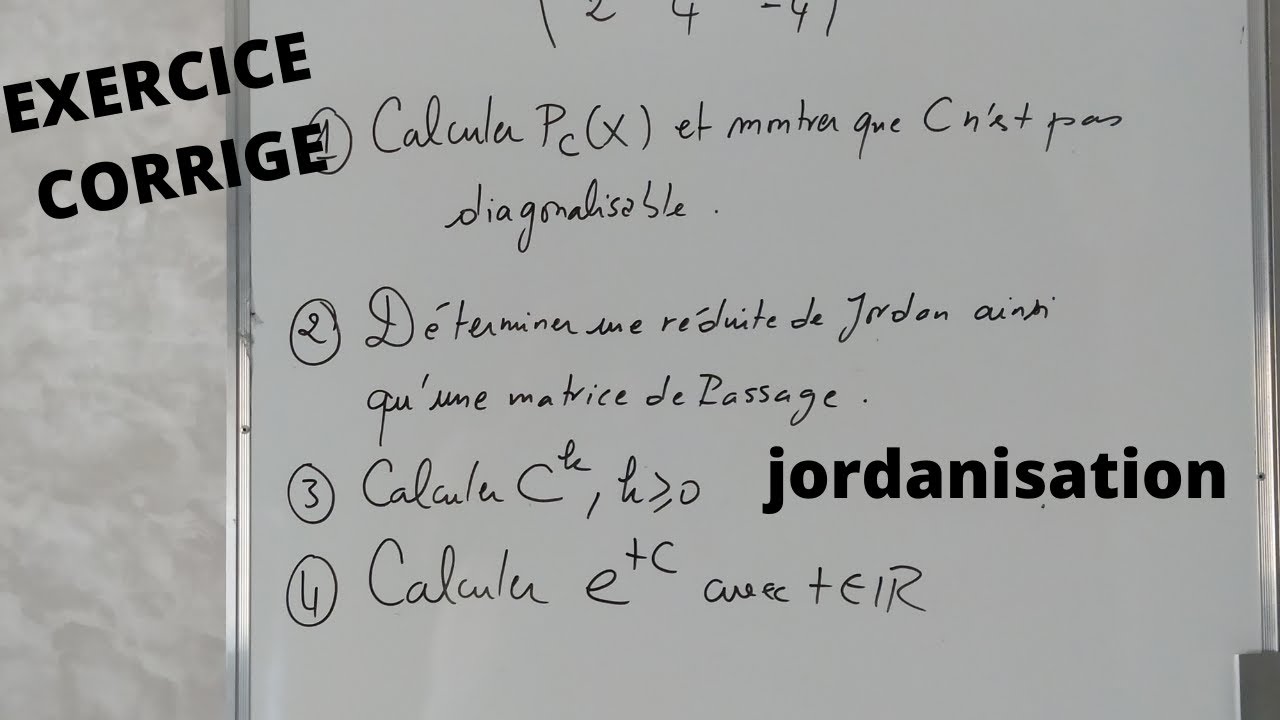 2 4 -4
EXERCICE
CORRIGE
① Calculer P_C(X) et montrer que C n'est pas
diagonalisable.
② Déterminer une réduite de Jordan ainsi
qu'une matrice de Passage.
③ Calculer C^k, k ≥ 0
jordanisation
④ Calculer e^{tC} avec t ∈ ℝ